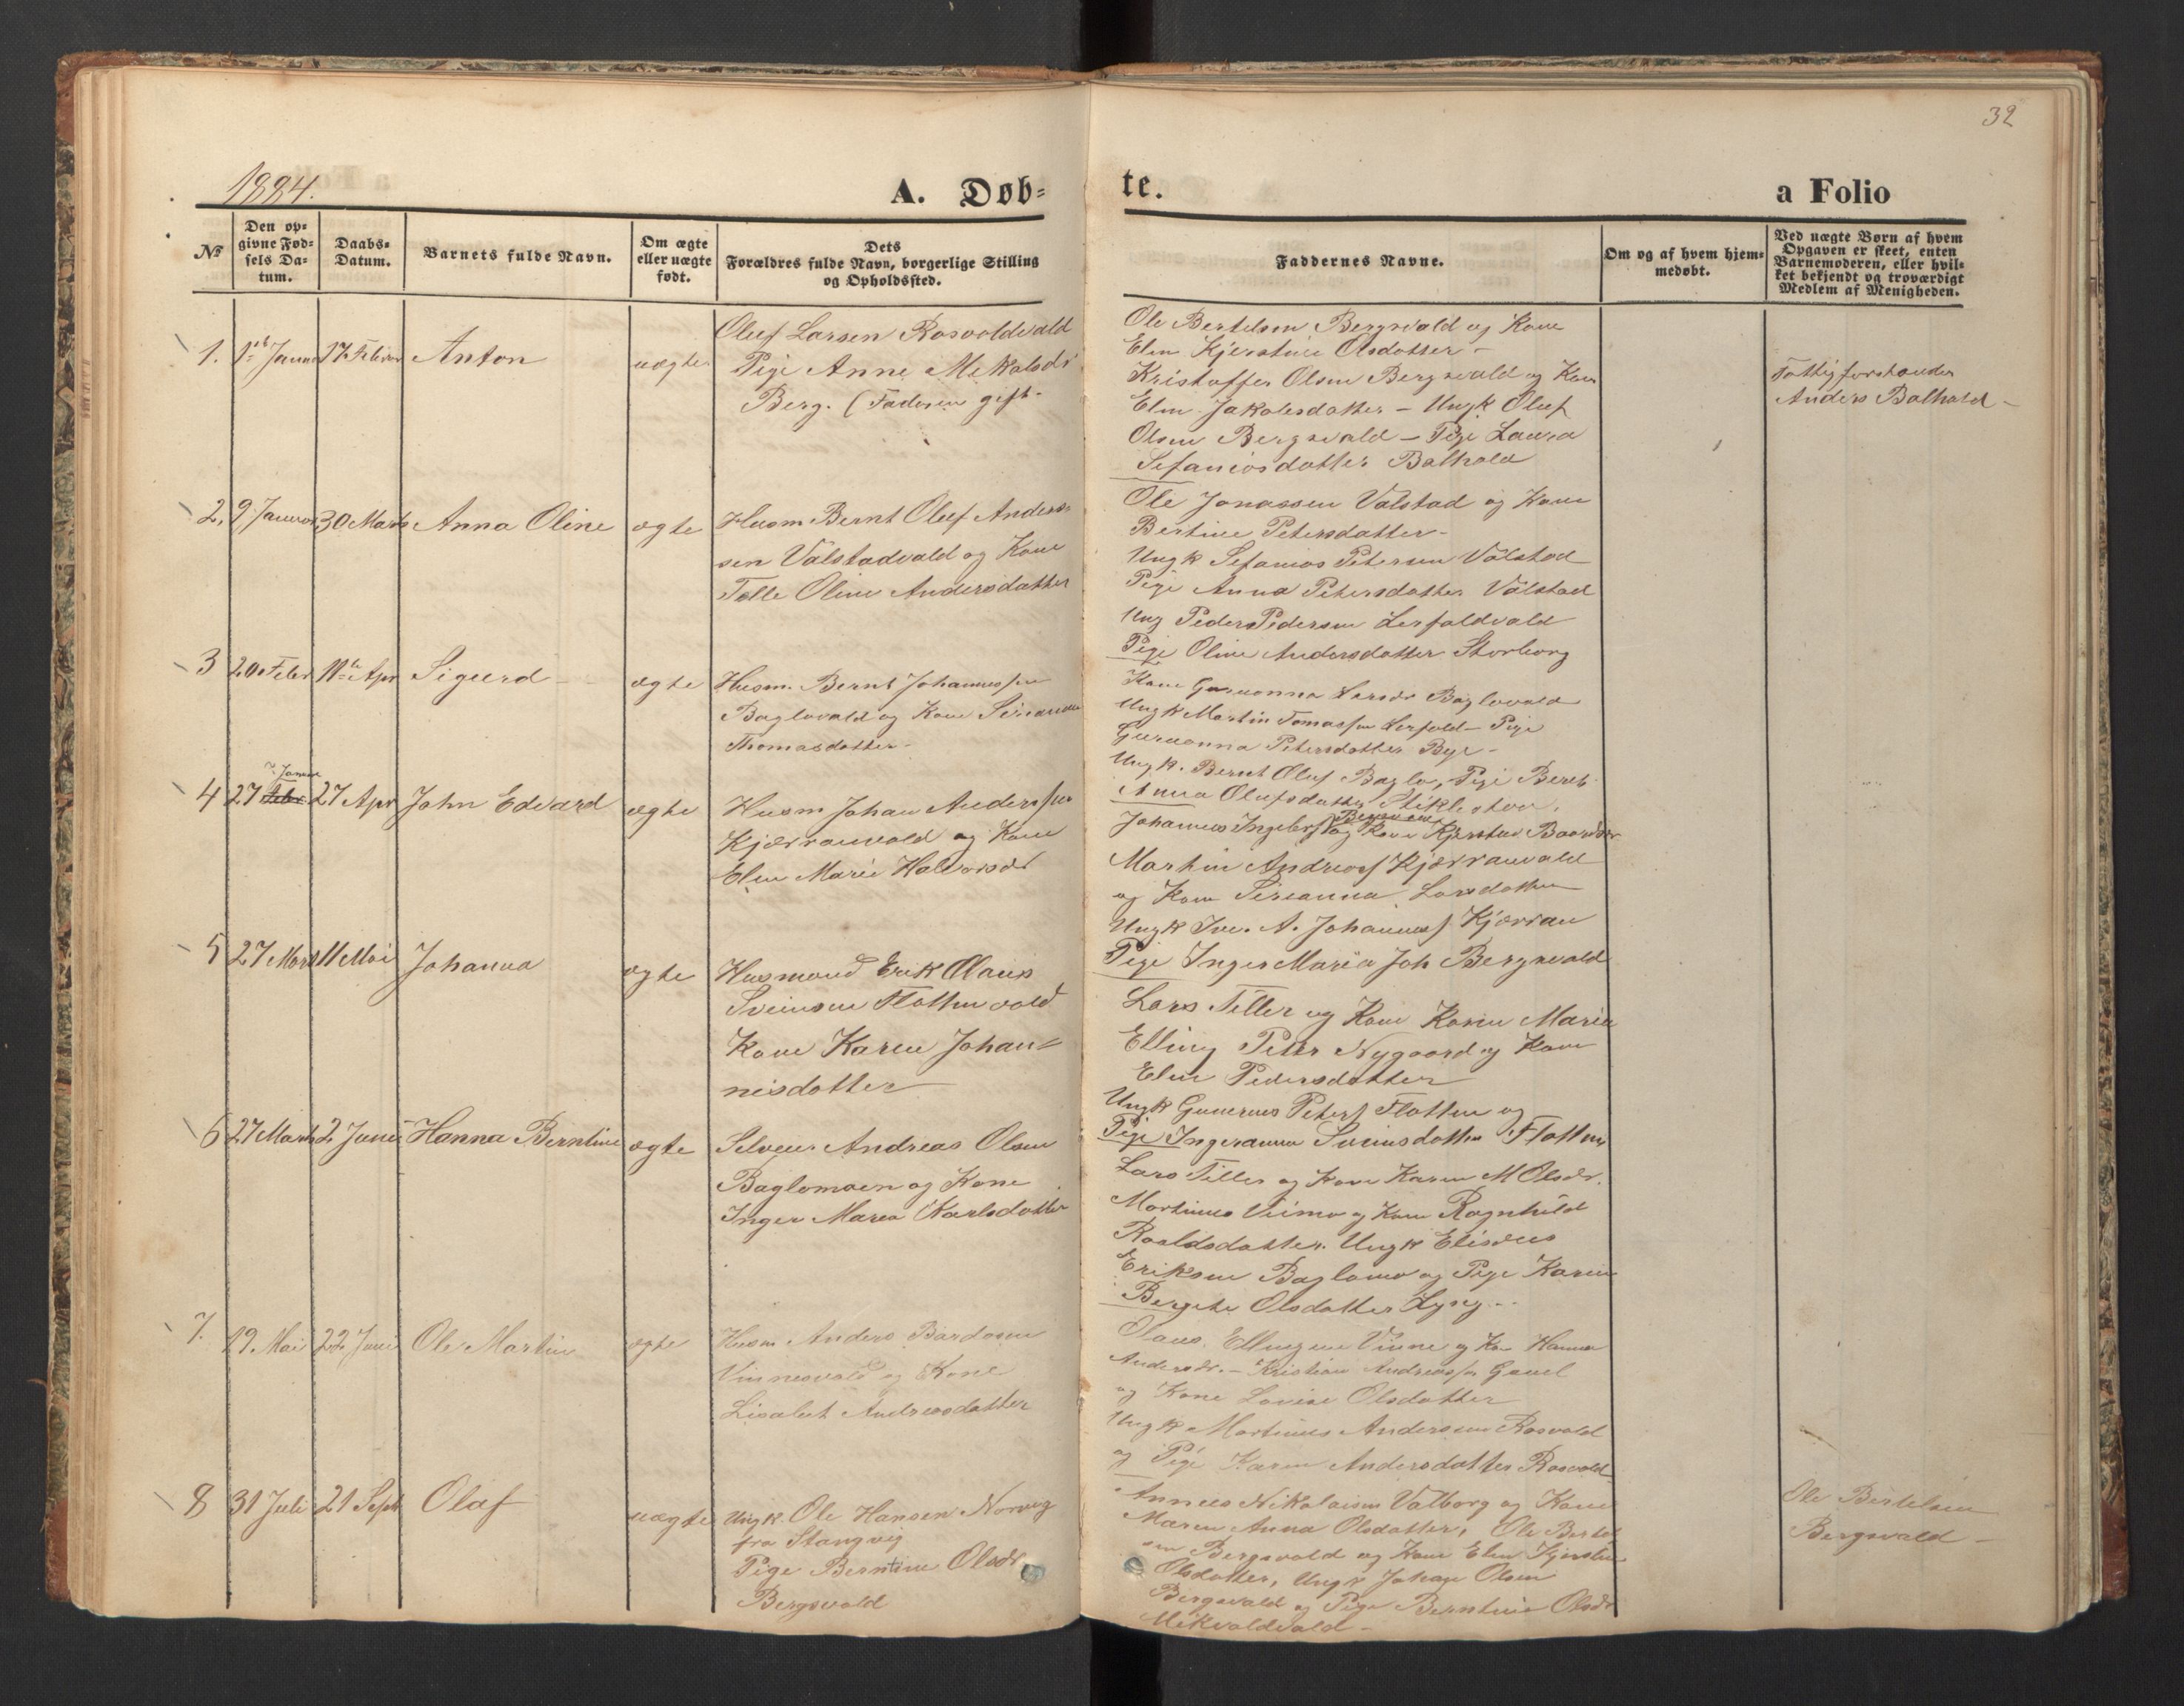 32
1884.
A. Døb-
te.
a Folio
No
Den op-
givne Fød-
sels Da-
tum.
Daabs-
Datum.
Barnets fulde Navn.
Om ægte
eller uægte
født.
Dets
Forældres fulde Navn, borgerlige Stilling
og Opholdssted.
Faddernes Navne.
Om og af hvem hjem-
medøbt.
Ved uægte Børn af hvem
Opgaven er skeet, enten
Barnemoderen, eller hvil-
ket bekjendt og troværdigt
Medlem af Menigheden.
1. 1ste Januar 17 Februar Anton uægte
Oluf Larsen Rosvoldvald
Pige Anne Mikalsdr
Berg. (Faderen gift.
Ole Bertelsen Bergsvald og Kone
Elen Kjerstine Olsdatter -
Kristoffer Olsen Bergsvald og Kone
Elen Jakobsdatter - Ungk Oluf
Olsen Bergsvald - Pige Laura
Sefaniasdatter Balhald
Fattigforstander
Anders Balhald -
2. 9 Januar 30 Marts Anna Oline ægte
Husm Bernt Oluf Anders-
sen Valstadvald og Kone
Oline Andersdatter
Ole Jonassen Valstad og Kone
Bertine Petersdatter -
Ungk Sefanias Petersen Valstad
Pige Anna Petersdatter Valstad
Ung Peder Pedersen Lerfaldvald
Pige Oline Andersdatter Storborg
3 20 Febr 11te Apr Sigurd - ægte
Husm. Bernt Johannessen
Baglovald og Kone
Thomasdatter -
Kone Larsdr Baglovald
Ungk Martin Tomassen Lerfald - Pige
Petersdatter Bye -
Ungk. Bernt Oluf Baglo, Pige Beret
Anna Olufsdatter Stiklestad.
4 27 Januar Febr 27 Apr John Edvard ægte
Husm Johan Anderssen
Kjærranvald og Kone
Elen Marie Halvorsdr
Johannes og Kone Kjersten Baardsdr
Martin Andreas Kjærranvald
og Kone Larsdatter
Ungk A. Johannes Kjærran
Pige Inger Maria Joh Bergsvald
5 27 Marts 11 Mai Johanna ægte
Husmand Erik Olaus
Sveinsen Flottenvald
Kone Karen Johan-
nisdatter
Lars Tiller og Kone Karen Maria
Elling Peter Nygaard og Kone
Elen Pedersdatter
Ungk Peters Flotten og
Pige Ingeranna Sveinsdatter Flotten
6 27 Marts 2. Juni Hanna Berntine ægte
Selveier Andreas Olsen
Baglomoen og Kone
Inger Maria Karlsdatter
Lars Tiller og Kone Karen M Olsdr.
Martinus og Kone Ragnhild
Roaldsdatter. Ungk Elisæus
Eriksen Baglomo og Pige Karen
Bergete Olsdatter Lyng -
7. 19. Mai 22. Juni Ole Martin ægte
Husm Anders Bardosen
Vinnesvald og Kone
Lisabet Andreasdatter
Olaus Ellingsen Vinne og Kone Hanna
Andersdr. - Kristian Andreassen
og Kone Lovise Olsdatter
Ungk Martinus Andersen Rosvold
og Pige Karen Andersdatter Rosvold
8 31 Juli 21 Sept Olaf uægte
Ungk. Ole Hansen Norvig
fra Stangvig
Pige Berntine Olsdr
Bergsvald
Nikolaisen Valborg og Kone
Maren Anna Olsdatter, Ole Bertel-
sen Bergsvald og Kone Elen Kjerstine
Olsdatter, Ungk Johan Olsen
Bergsvald og Pige Berntine Olsdr
Mikvoldvald -
Ole Bertelsen
Bergsvald -